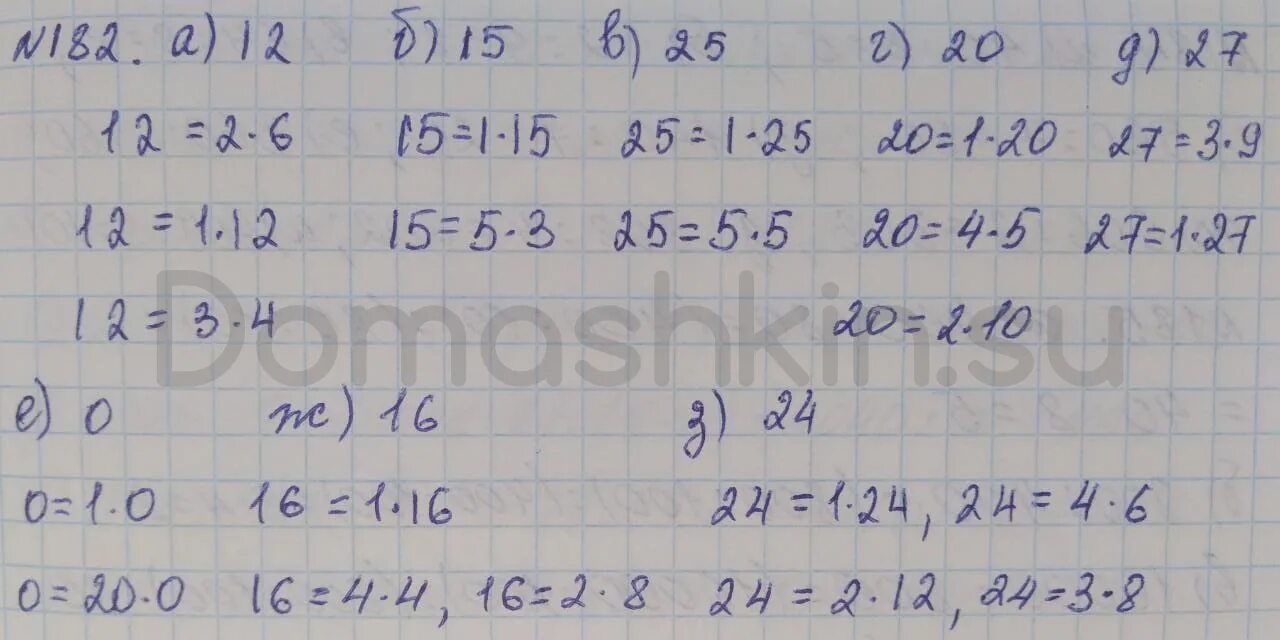 №182. а) 12 б) 15 в) 25 г) 20 д) 27
12 = 2·6 15=1·15 25=1·25 20=1·20 27=3·9
12 = 1·12 15=5·3 25=5·5 20=4·5 27=1·27
12 = 3·4 20=2·10
Domashkin.su
е) 0 ж) 16 з) 24
0=1·0 16=1·16 24=1·24, 24=4·6
0=20·0 16=4·4, 16=2·8 24=2·12, 24=3·8